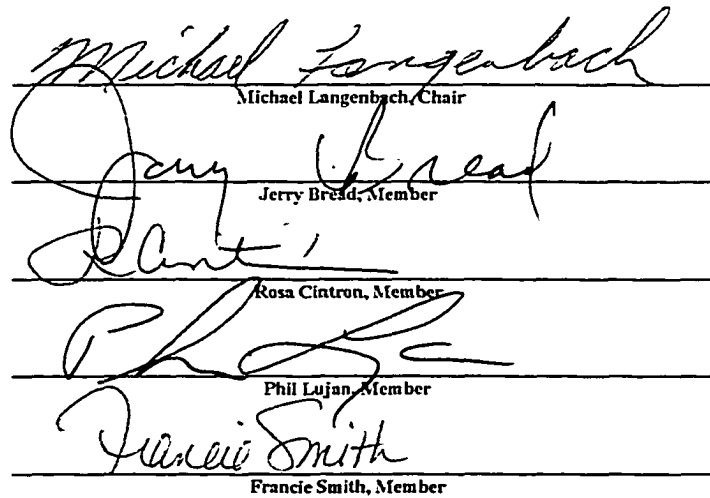 Michael Langenbach
Michael Langenbach, Chair
Jerry Bread
Jerry Bread, Member
Rosa Cintron, Member
Phil Lujan, Member
Francie Smith
Francie Smith, Member